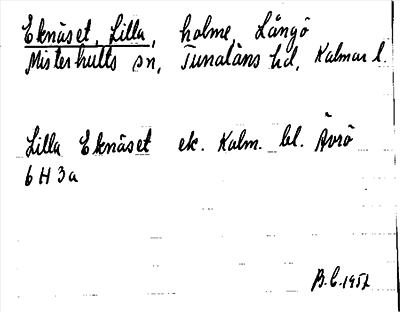 Eknäset, Lilla, holme, Långö
Misterhults sn, Tunaläns hd, Kalmar l.
Lilla Eknäset ek. Kalm. bl. Ävrö
6 H 3a
B.C. 1952